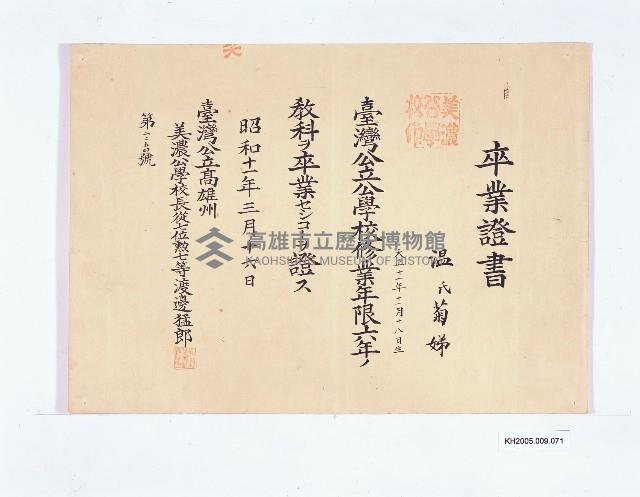 卒業證書
溫氏菊娣
大正十一年十二月十八日生
臺灣公立公學校修業年限六年ノ
教科ヲ卒業セシコトヲ證ス
昭和十一年三月十六日
臺灣公立高雄州
美濃公學校長從七位勲七等渡邊猛郎
號
美濃公學校印
高雄市立歷史博物館
KAOHSIUNG MUSEUM OF HISTORY
KH2005.009.071